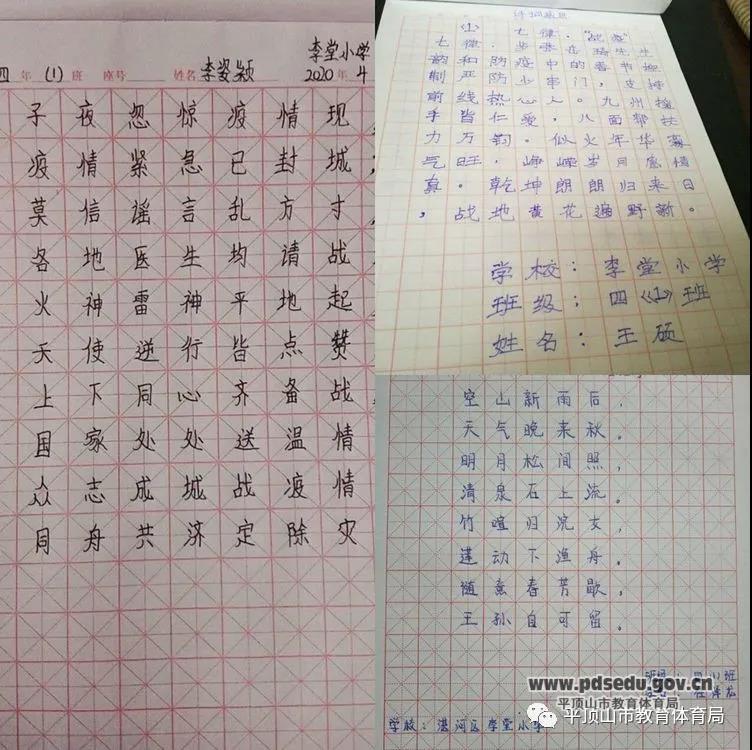 李堂小学
四 年 (1) 班 座号 姓名 李姿颖 2020 年 4
子夜忽惊疫情现
疫情紧急已封城
莫信谣言乱方寸
各地医生均请战
火神雷神平地起
天使逆行皆点赞
上下同心齐备战
国家处处送温情
众志成城战疫情
同舟共济定除灾
(1) 七律·"战疫"
七律·步张
韵和防疫中的春节
制严防少串门,支持
前线热心人。九州援
手皆仁爱,八面帮扶
力万钧。似火年华豪
气旺,峥嵘岁月感情
真。乾坤朗朗归来日
,战地黄花遍野新。
学校:李堂小学
班级:四《1》班
姓名:王硕
空山新雨后,
天气晚来秋。
明月松间照,
清泉石上流。
竹喧归浣女,
莲动下渔舟。
随意春芳歇,
王孙自可留。
学校:湛河区李堂小学
www.pdsedu.gov.cn
平顶山市教育体育局
平顶山市教育体育局